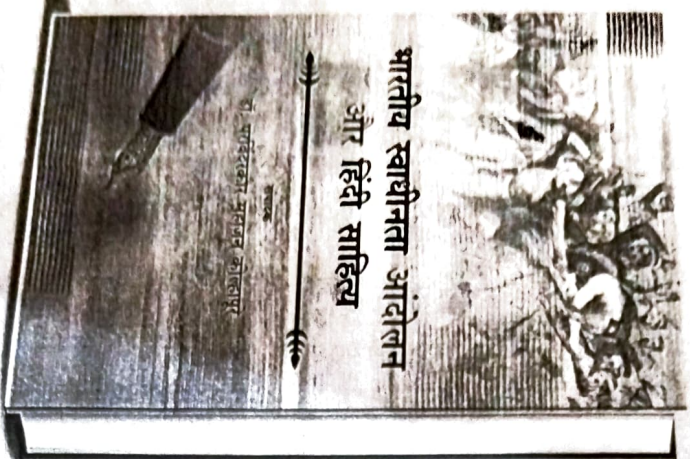 भारतीय स्वाधीनता आंदोलन
और हिंदी साहित्य
संपादक
डॉ. कोल्हापुर